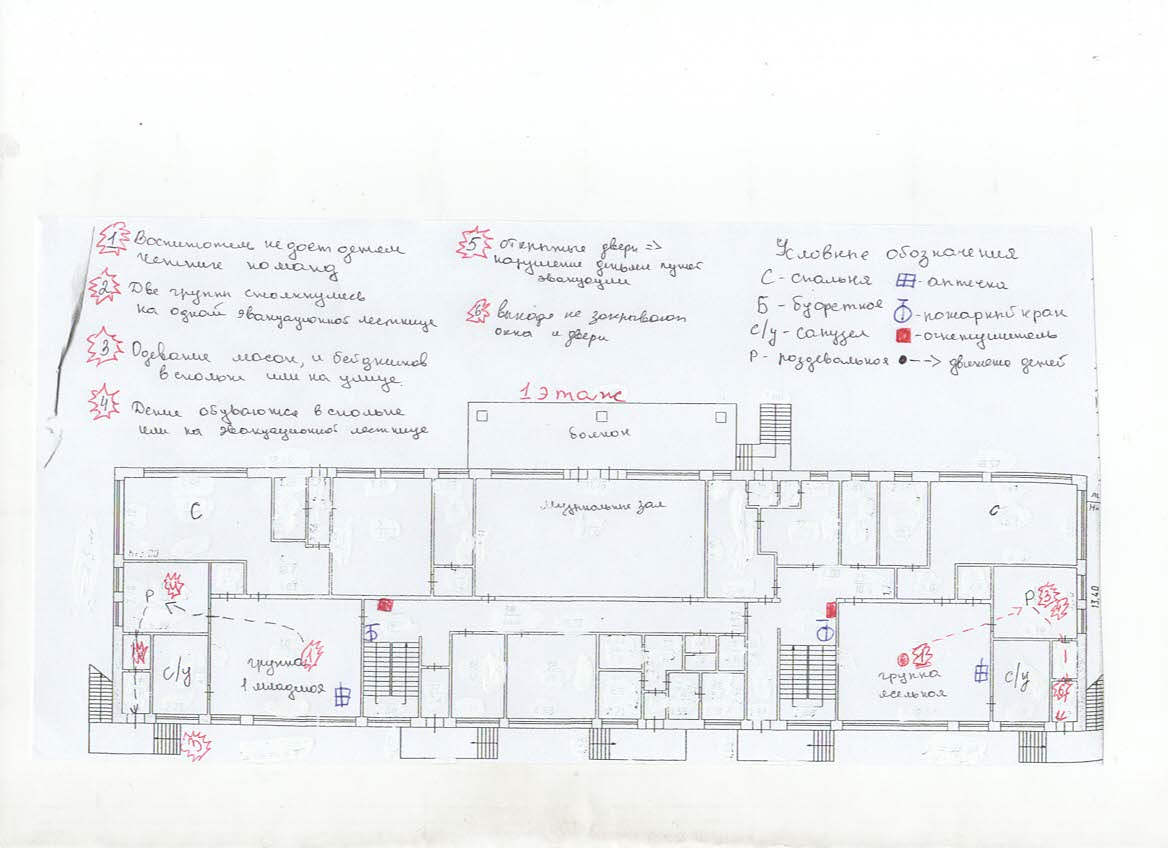 1 Воспитатель не дает детям
четких команд
2 Две группы столкнулись
на одной эвакуационной лестнице
3 Одевание масок, и бейджиков
в спальне или на улице.
4 Дети обуваются в спальне
или на эвакуационной лестнице
5 открытые двери =>
нарушение путей
эвакуации
6 выходя не закрывают
окна и двери
Условные обозначения
С - спальня
- аптечка
Б - буфетное
- пожарный кран
с/у - санузел
- огнетушитель
Р - раздевальная
--> движение детей
1 этаж
балкон
С
Музыкальный зал
с
Р
4
Р
3
13,40
Б
с/у
группа
1 младшая
1
группа
ясельная
с/у
6